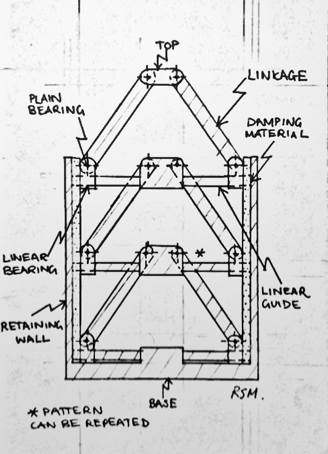 TOP
LINKAGE
PLAIN
BEARING
DAMPING
MATERIAL
*
LINEAR
BEARING
LINEAR
GUIDE
RETAINING
WALL
BASE
RSM.
* PATTERN
CAN BE REPEATED